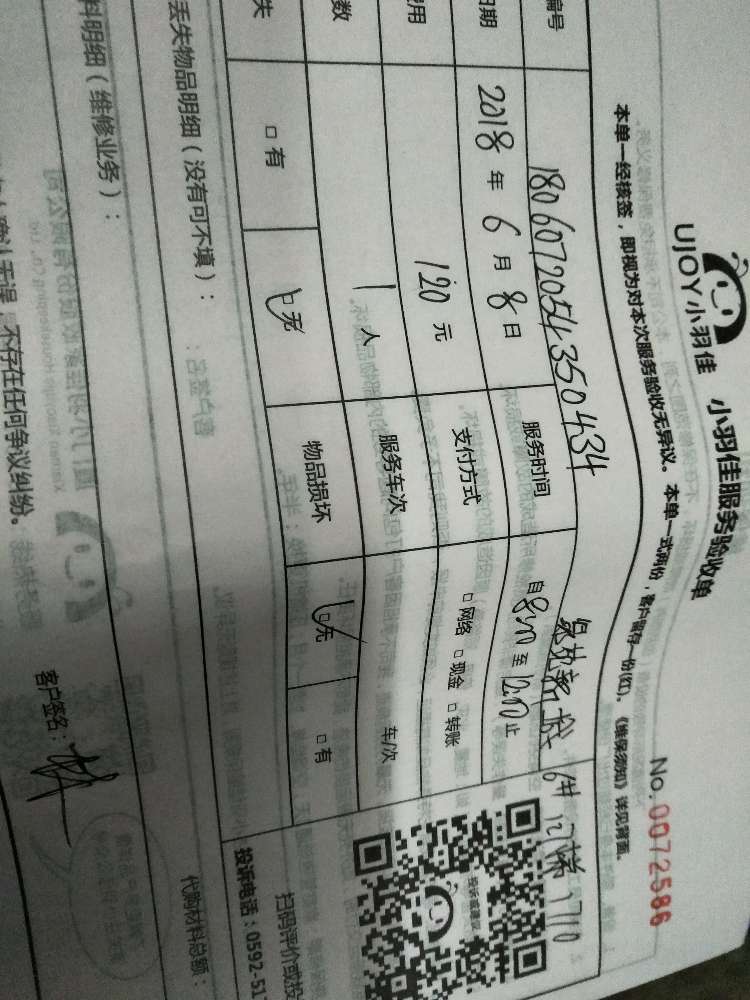 UJOY小羽佳 小羽佳服务验收单 No. 0072586
本单一经核签，即视为对本次服务验收无异议。本单一式两份，客户留存一份(红)。《维保须知》详见背面。
编号 1806072054350434 6# 1710
日期 2018年6月8日 服务时间 自8:00至12:00止
费用 120元 支付方式 □网络 □现金 □转账
数 1人 服务车次 车/次
失 □有 □无 物品损坏 □无 □有
丢失物品明细（没有可不填）：
料明细（维修业务）：
代购材料总额：
无误，不存在任何争议纠纷。
客户签名：
扫码评价或投
投诉电话：0592-517